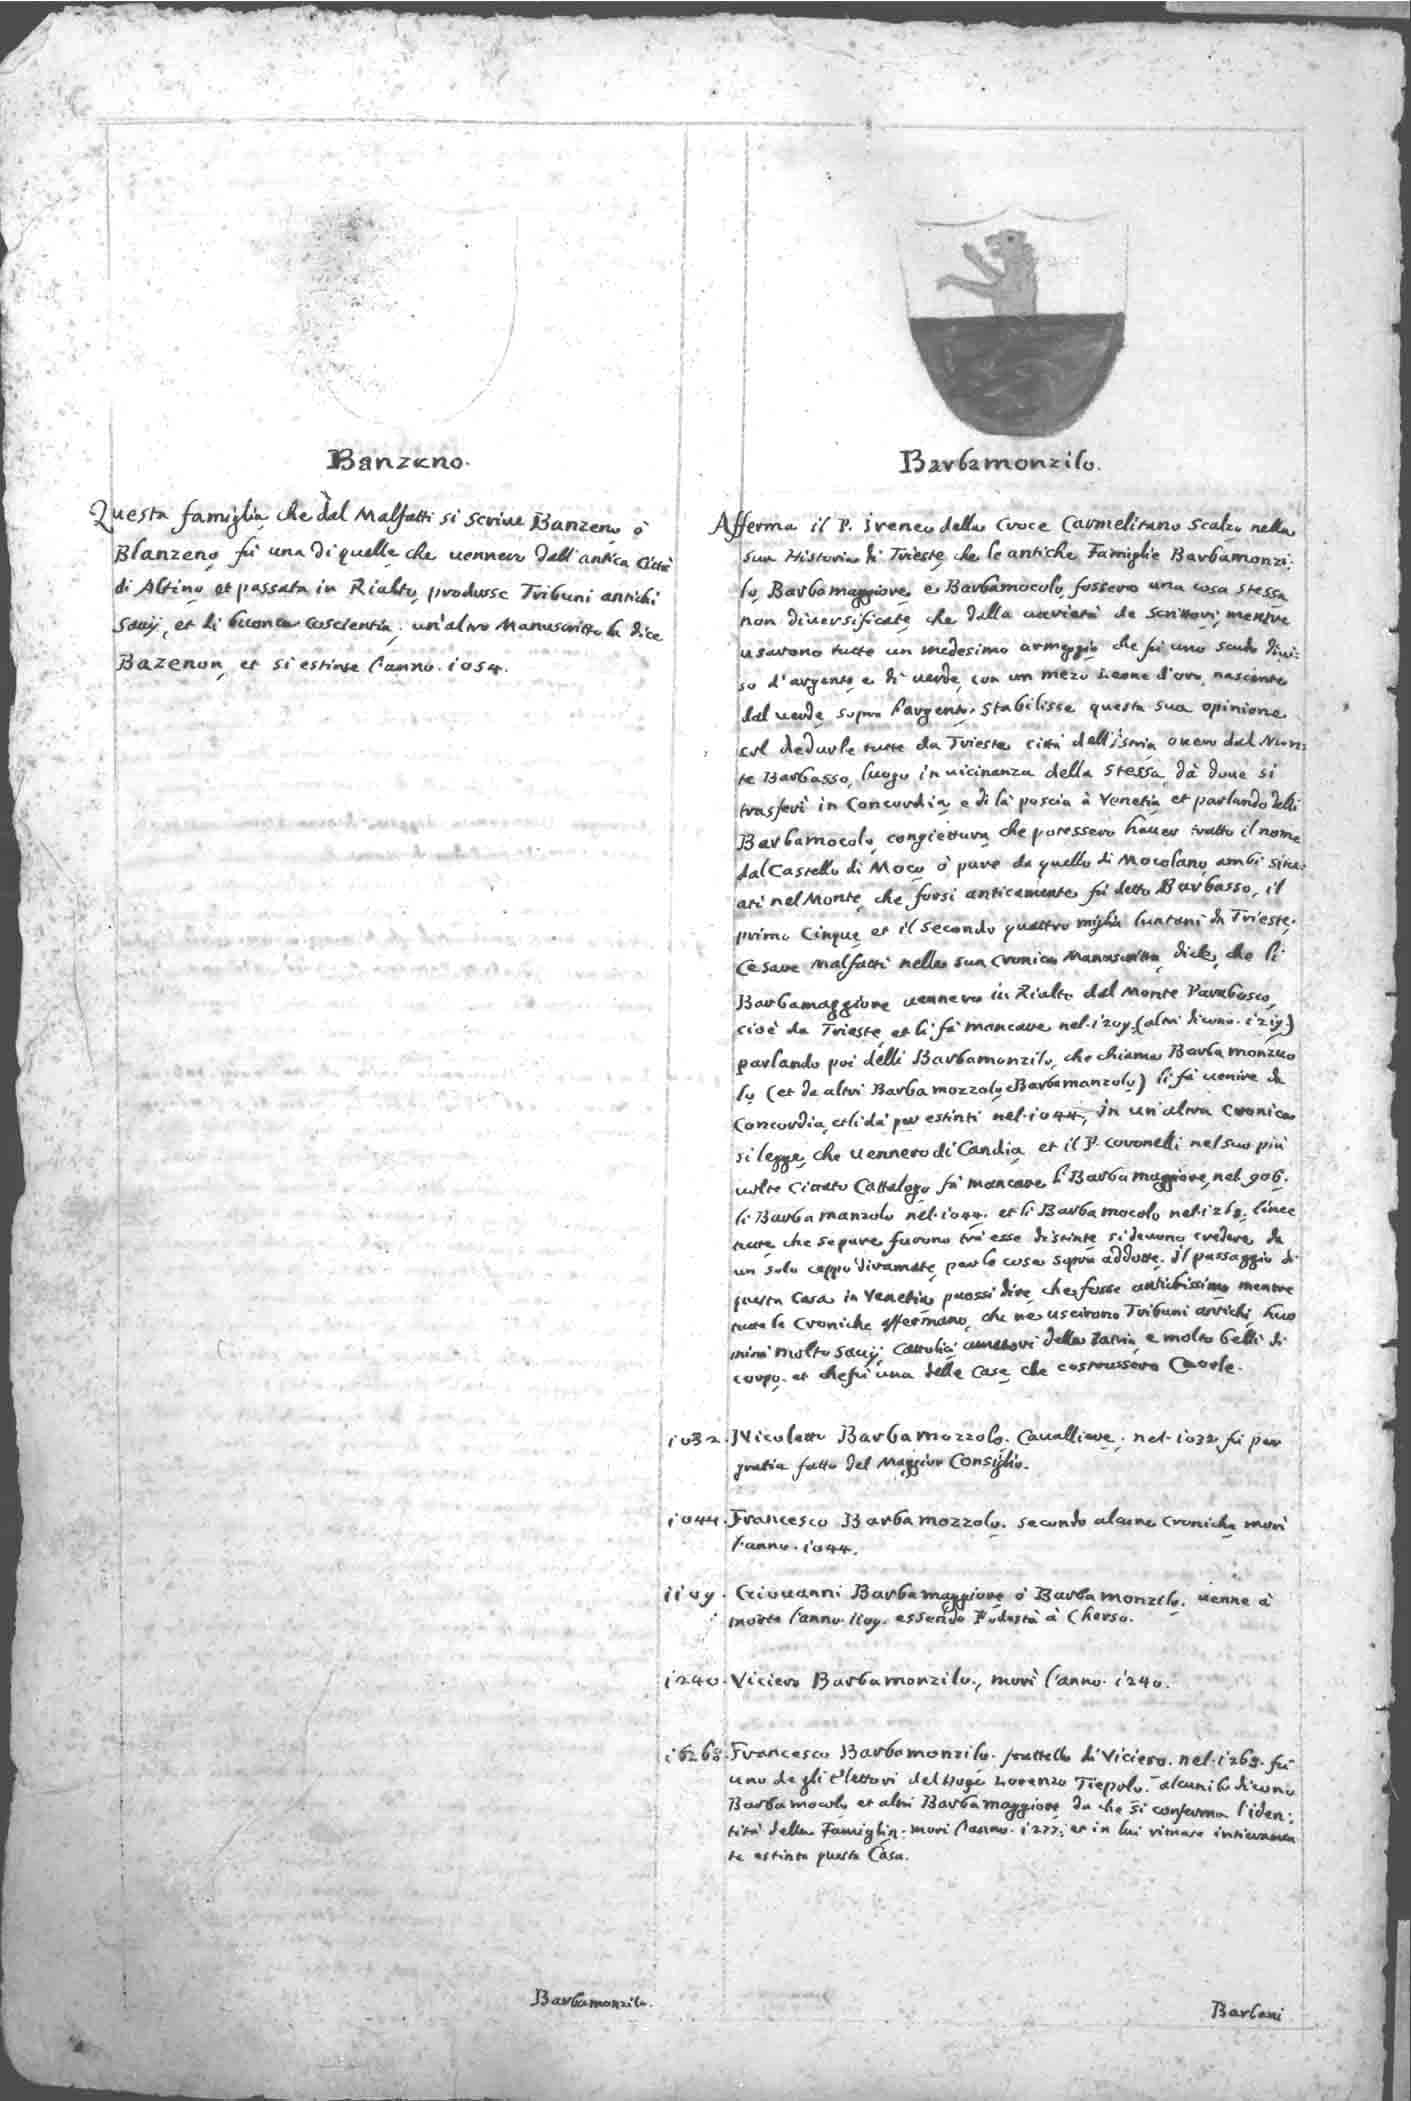 Banzeno.
Questa famiglia, che dal Malfatti si scriue Banzeno, ò
Blanzeno, fù una di quelle, che uennero dall'antica Città
di Altino, et passata in Rialto, produsse Tribuni antichi
sauij, et di buona coscientia. un'altro Manuscritto la dice
Bazenon, et si estinse l'anno. 1054.
Barbamonzilo.
Barbamonzilo.
Afferma il P. Ireneo della Croce Carmelitano Scalzo nella
sua Historia di Trieste, che le antiche Famiglie Barbamonzi:
lo, Barbamaggiore, e Barbamocolo, fossero una cosa stessa
non diuersificate, che dalla uarietà de Scrittori, mentre
usarono tutte un medesimo armeggio, che fù uno scudo diui:
so d'argento, e di uerde, con un mezo Leone d'oro, nascente
dal uerde, sopra l'argento. Stabilisse questa sua opinione
col dedurle tutte da Trieste città dell'Istria ouero dal Mon:
te Barbasso, luogo in uicinanza della stessa, dà doue si
trasferì in Concordia, e di là poscia à Venetia, et parlando delli
Barbamocolo, congiettura, che potessero hauer tratto il nome
dal Castello di Moco, ò pure da quello di Mocolano, ambi situ:
ati nel Monte, che forsi anticamente fù detto Barbasso, il
primo Cinque, et il secondo quattro miglia luntani da Trieste.
Cesare Malfatti nella sua Cronica Manuscritta, dice, che li
Barbamaggiore uennero in Rialto dal Monte Parabosco,
cioè da Trieste, et li fà mancare nel. 1207. (altri dicono. 1217)
parlando poi delli Barbamonzilo, che chiama Barbamonzuo
lo (et da altri Barbamozzolo, e Barbamanzolo) li fà uenire da
Concordia, et li dà per estinti nel. 1044, in un'altra Cronica
si legge, che uennero di Candia, et il P. Coronelli nel suo più
uolte Cittato Cattalogo fà mancare li Barbamaggiore, nel 906.
li Barbamanzolo nel. 1044. et li Barbamocolo nel. 1268. linee
tutte, che se pure furono trà esse distinte, si deuono credere da
un solo ceppo diramate, per le cose sopra addotte. Il passaggio di
questa Casa in Venetia, puossi dire, che fosse antichissimo mentre
tutte le Croniche affermano, che ne uscirono Tribuni antichi, huo
mini molto sauij, Cattolici, amatori della Patria, e molto belli di
corpo. et che fù una delle Case, che costrussero Caorle.
1032. Nicoletto Barbamozzolo. Caualliere. nel. 1032. fù per
gratia fatto del Maggior Consiglio.
1044. Francesco Barbamozzolo. secondo alcune Croniche morì
l'anno. 1044.
1107. Giouanni Barbamaggiore, ò Barbamonzilo. uenne à
morte l'anno. 1107. essendo Podestà à Cherso.
1240. Viciero Barbamonzilo, morì l'anno. 1240.
Francesco Barbamonzilo. frattello di Viciero. nel. 1268. fù
uno degli Elettori del Doge Lorenzo Tiepolo. alcuni lo dicono
Barbamocolo, et altri Barbamaggiore, da che si conferma l'iden:
tità della Famiglia. morì l'anno. 1277. et in lui rimase intieramen
te estinta questa Casa.
Barbani